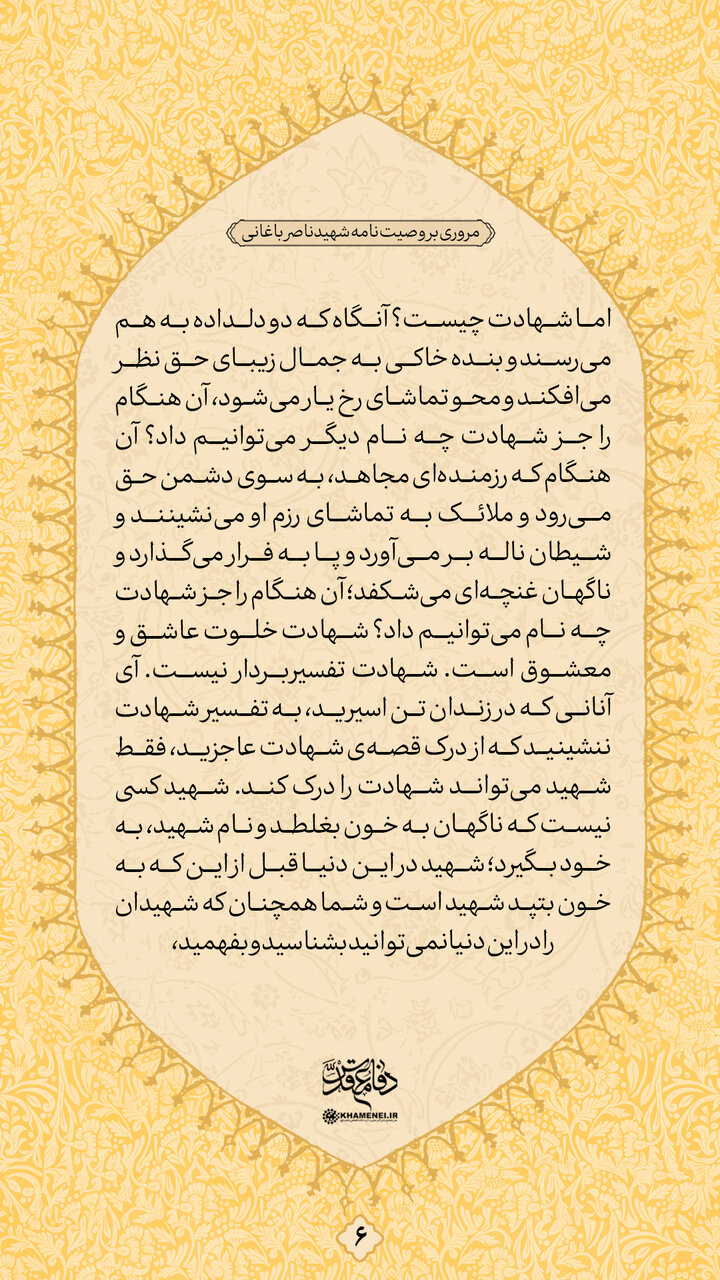 مروری بر وصیت نامه شهید ناصر باغانی
اما شهادت چیست؟ آنگاه که دو دلداده به هم
می‌رسند و بنده خاکی به جمال زیبای حق نظر
می‌افکند و محو تماشای رخ یار می‌شود، آن هنگام
را جز شهادت چه نام دیگر می‌توانیم داد؟ آن
هنگام که رزمنده‌ای مجاهد، به سوی دشمن حق
می‌رود و ملائک به تماشای رزم او می‌نشینند و
شیطان ناله بر می‌آورد و پا به فرار می‌گذارد و
ناگهان غنچه‌ای می‌شکفد؛ آن هنگام را جز شهادت
چه نام می‌توانیم داد؟ شهادت خلوت عاشق و
معشوق است. شهادت تفسیربردار نیست. آی
آنانی که در زندان تن اسیرید، به تفسیر شهادت
ننشینید که از درک قصه‌ی شهادت عاجزید، فقط
شهید می‌تواند شهادت را درک کند. شهید کسی
نیست که ناگهان به خون بغلطد و نام شهید، به
خود بگیرد؛ شهید در این دنیا قبل از این که به
خون بتپد شهید است و شما همچنان که شهیدان
را در این دنیا نمی‌توانید بشناسید و بفهمید،
دفاع مقدس
KHAMENEI.IR
۶